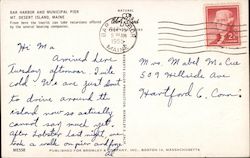 BAR HARBOR AND MUNICIPAL PIER
MT. DESERT ISLAND, MAINE
From here the tourist can take excursions offered
by the several boating companies.
BAR
MAINE
2¢
Hi Ma
Arrived here
Tuesday afternoon. Quite
cold. We are just
to drive around the
island now so actually
cannot say much yet.
After lobster last night we
took a walk on pier and
Mrs. Mabel McCue
509 Hillside Ave
Hartford 6, Conn.